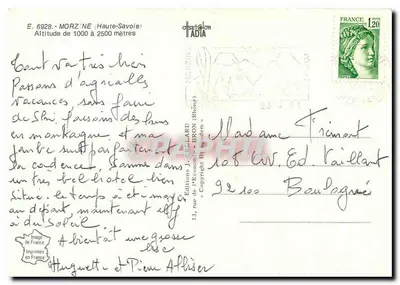 E. 6928. - MORZINE (Haute-Savoie)
Altitude de 1000 à 2500 mètres
TADIA
FRANCE
1,20
Tout va très bien
Passons d'agréables
vacances, sans faire
de Ski, faisons des
en montagne, et ma
jambe suit parfaitement
la cadence, sommes dans
un très bel hotel bien
situé. le temps a été moyen
au départ, maintenant
à du Soleil
A bientôt une grosse
bise
Huguette et Pierre
Madame Frémont
108 Av. Ed. Vaillant
92100 Boulogne
Image
de France
Imprimée
en France
Editions
13, rue de BRON (Rhône)